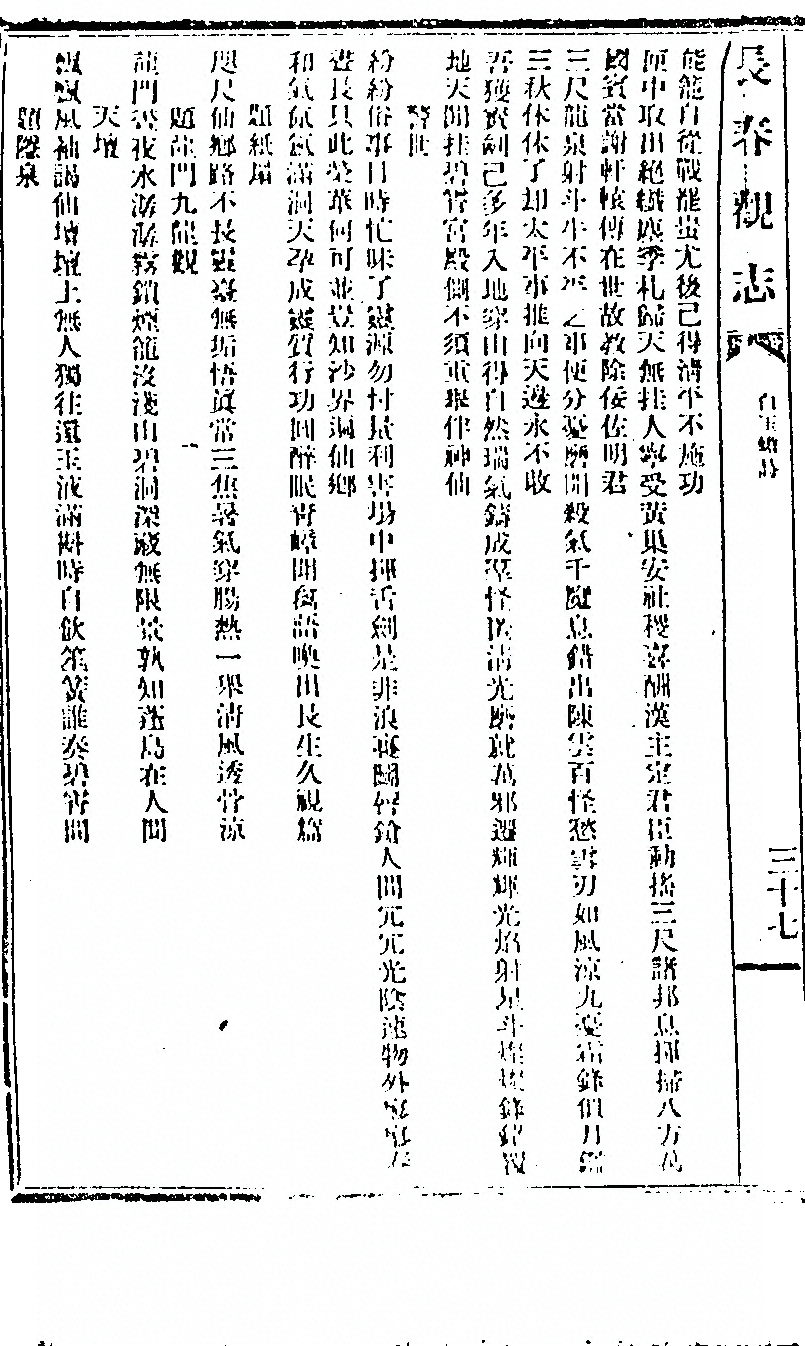 長春觀志
三十七
能籠自從戰罷蚩尤後己得清平不施功
匣中取出絕纖塵季札歸天無挂人寧受黃巢安社稷喜酬漢主定君臣動搖三尺諸邦息揮掃八方萬
國賓當謝軒轅傳在世故教除佞佐明君
三尺龍泉射斗牛不平之事便分憂磨開殺氣千魔息錯出陳雲百怪愁雪刃如風涼九憂霜鋒俏月鑑
三秋休休了却太平事推向天邊永不收
吾獲寶劍己多年入地穿山得自然瑞氣鑄成羣怪清光磨就萬邪遷輝輝光焰射星斗燦燦鋒鋩
地天開挂碧霄宮殿側不須重舉伴神仙
警世
紛紛俗事日時忙昧了靈源勿忖量利害場中揮舌劍是非浪裏鬪脣鎗人間冗冗光陰速物外
晝長只此榮華何可並豈知沙界洞仙鄉
和氣氤氳滿洞天孕成靈質行功圓醉眠青嶂閒窩語喚出長生久視篇
題紙扇
咫尺仙鄉路不長靈臺無垢悟真常三焦暑氣穿腸熱一舉清風透骨涼
題龍門九龍觀
龍門晝夜水潺潺霧鎖煙籠沒淺山碧洞深藏無限景孰知蓬島在人間
天壇
飄飄風袖謁仙壇壇上無人獨往還玉液滿斟時自飲笙簧誰奏碧霄間
題醴泉